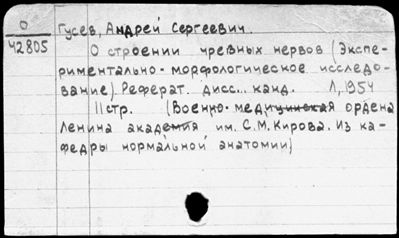 О
42805
Гусев, Андрей Сергеевич.
О строении чревных нервов (Экспе-
риментально-морфологическое исследо-
вание). Реферат. дисс... канд. Л, 1954
11 стр. (Военно-медицинская ордена
Ленина академия им. С.М. Кирова. Из ка-
федры нормальной анатомии)